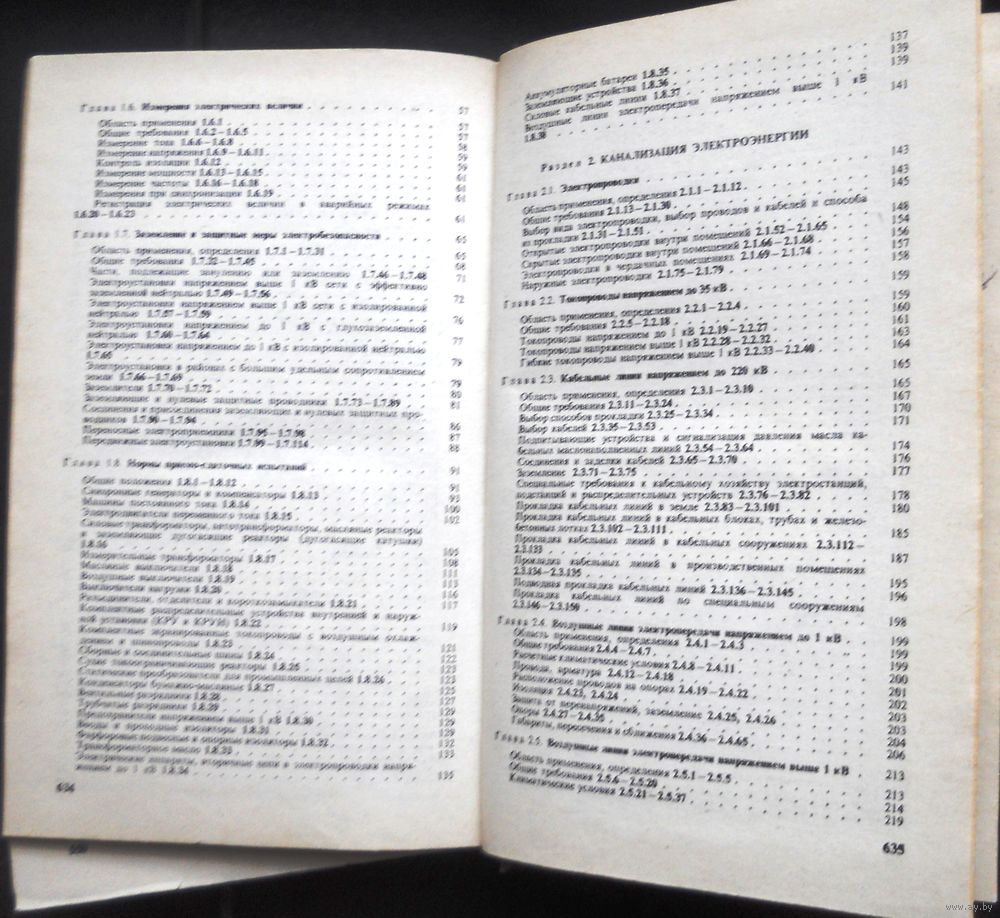 Глава 1.6. Измерения электрических величин 57
Область применения 1.6.1 57
Общие требования 1.6.2—1.6.5 57
Измерение тока 1.6.6—1.6.8 58
Измерение напряжения 1.6.9—1.6.11 59
Контроль изоляции 1.6.12 59
Измерение мощности 1.6.13—1.6.15 59
Измерение частоты 1.6.16—1.6.18 61
Измерения при синхронизации 1.6.19 61
Регистрация электрических величин в аварийных режимах
1.6.20—1.6.23 61
Глава 1.7. Заземление и защитные меры электробезопасности 65
Область применения, определения 1.7.1—1.7.31 65
Общие требования 1.7.32—1.7.45 68
Части, подлежащие занулению или заземлению 1.7.46—1.7.48 71
Электроустановки напряжением выше 1 кВ сети с эффективно
заземленной нейтралью 1.7.49—1.7.56 72
Электроустановки напряжением выше 1 кВ сети с изолированной
нейтралью 1.7.57—1.7.59 76
Электроустановки напряжением до 1 кВ с глухозаземленной
нейтралью 1.7.60—1.7.64 77
Электроустановки напряжением до 1 кВ с изолированной нейтралью
1.7.65 79
Электроустановки в районах с большим удельным сопротивлением
земли 1.7.66—1.7.69 79
Заземлители 1.7.70—1.7.72 80
Заземляющие и нулевые защитные проводники 1.7.73—1.7.89 81
Соединения и присоединения заземляющих и нулевых защитных про-
водников 1.7.90—1.7.94 86
Переносные электроприемники 1.7.95—1.7.98 87
Передвижные электроустановки 1.7.99—1.7.114 88
Глава 1.8. Нормы приемо-сдаточных испытаний 91
Общие положения 1.8.1—1.8.12 91
Синхронные генераторы и компенсаторы 1.8.13 93
Машины постоянного тока 1.8.14 100
Электродвигатели переменного тока 1.8.15 102
Силовые трансформаторы, автотрансформаторы, масляные реакторы
и заземляющие дугогасящие реакторы (дугогасящие катушки)
1.8.16 105
Измерительные трансформаторы 1.8.17 108
Масляные выключатели 1.8.18 111
Воздушные выключатели 1.8.19 113
Выключатели нагрузки 1.8.20 116
Разъединители, отделители и короткозамыкатели 1.8.21 117
Комплектные распределительные устройства внутренней и наруж-
ной установки (КРУ и КРУН) 1.8.22 119
Комплектные экранированные токопроводы с воздушным охлаж-
дением и шинопроводы 1.8.23 121
Сборные и соединительные шины 1.8.24 122
Сухие токоограничивающие реакторы 1.8.25 123
Статические преобразователи для промышленных целей 1.8.26 123
Конденсаторы бумажно-масляные 1.8.27 125
Вентильные разрядники 1.8.28 127
Трубчатые разрядники 1.8.29 129
Предохранители напряжением выше 1 кВ 1.8.30 129
Вводы и проходные изоляторы 1.8.31 129
Фарфоровые подвесные и опорные изоляторы 1.8.32 132
Трансформаторное масло 1.8.33 133
Электрические аппараты, вторичные цепи и электропроводки напря-
жением до 1 кВ 1.8.34 135
634
Аккумуляторные батареи 1.8.35 137
Заземляющие устройства 1.8.36 139
Силовые кабельные линии 1.8.37 139
Воздушные линии электропередачи напряжением выше 1 кВ
1.8.38 141
Раздел 2. КАНАЛИЗАЦИЯ ЭЛЕКТРОЭНЕРГИИ
Глава 2.1. Электропроводки 143
Область применения, определения 2.1.1—2.1.12 143
Общие требования 2.1.13—2.1.30 145
Выбор вида электропроводки, выбор проводов и кабелей и способа
их прокладки 2.1.31—2.1.51 148
Открытые электропроводки внутри помещений 2.1.52—2.1.65 154
Скрытые электропроводки внутри помещений 2.1.66—2.1.68 156
Электропроводки в чердачных помещениях 2.1.69—2.1.74 157
Наружные электропроводки 2.1.75—2.1.79 158
Глава 2.2. Токопроводы напряжением до 35 кВ 159
Область применения, определения 2.2.1—2.2.4 159
Общие требования 2.2.5—2.2.18 160
Токопроводы напряжением до 1 кВ 2.2.19—2.2.27 161
Токопроводы напряжением выше 1 кВ 2.2.28—2.2.32 163
Гибкие токопроводы напряжением выше 1 кВ 2.2.33—2.2.40 164
Глава 2.3. Кабельные линии напряжением до 220 кВ 165
Область применения, определения 2.3.1—2.3.10 165
Общие требования 2.3.11—2.3.24 167
Выбор способов прокладки 2.3.25—2.3.34 170
Выбор кабелей 2.3.35—2.3.53 171
Подпитывающие устройства и сигнализация давления масла ка-
бельных маслонаполненных линий 2.3.54—2.3.64 174
Соединения и заделки кабелей 2.3.65—2.3.70 176
Заземление 2.3.71—2.3.75 177
Специальные требования к кабельному хозяйству электростанций,
подстанций и распределительных устройств 2.3.76—2.3.82 178
Прокладка кабельных линий в земле 2.3.83—2.3.101 180
Прокладка кабельных линий в кабельных блоках, трубах и железо-
бетонных лотках 2.3.102—2.3.111 185
Прокладка кабельных линий в кабельных сооружениях 2.3.112—
2.3.133 187
Прокладка кабельных линий в производственных помещениях
2.3.134—2.3.135 195
Подводная прокладка кабельных линий 2.3.136—2.3.145 196
Прокладка кабельных линий по специальным сооружениям
2.3.146—2.3.150 198
Глава 2.4. Воздушные линии электропередачи напряжением до 1 кВ 199
Область применения, определения 2.4.1—2.4.3 199
Общие требования 2.4.4—2.4.7 199
Расчетные климатические условия 2.4.8—2.4.11 200
Провода, арматура 2.4.12—2.4.18 201
Расположение проводов на опорах 2.4.19—2.4.22 202
Изоляция 2.4.23, 2.4.24 203
Защита от перенапряжений, заземление 2.4.25, 2.4.26 203
Опоры 2.4.27—2.4.35 204
Габариты, пересечения и сближения 2.4.36—2.4.65 206
Глава 2.5. Воздушные линии электропередачи напряжением выше 1 кВ 213
Область применения, определения 2.5.1—2.5.5 213
Общие требования 2.5.6—2.5.20 214
Климатические условия 2.5.21—2.5.37 219
635
www.ay.by